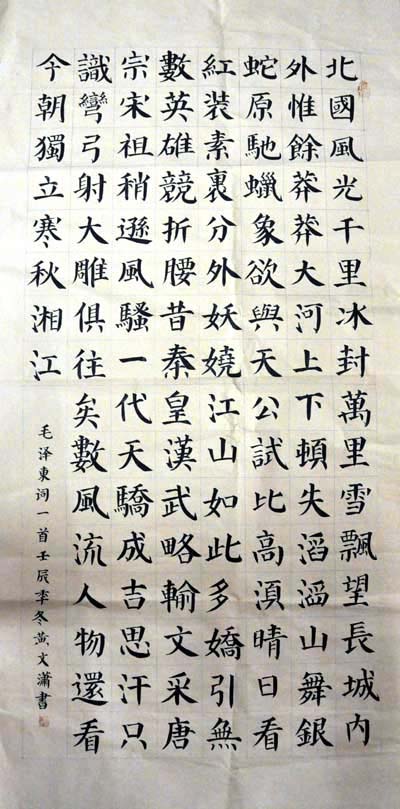 北國風光千里冰封萬里雪飄望長城内
外惟餘莽莽大河上下頓失滔滔山舞銀
蛇原馳蠟象欲與天公試比高須晴日看
紅装素裏分外妖嬈江山如此多嬌引無
數英雄競折腰昔秦皇漢武略輸文采唐
宗宋祖稍遜風騷一代天驕成吉思汗只
識彎弓射大雕俱往矣數風流人物還看
今朝獨立寒秋湘江
毛泽東词一首壬辰季冬黄文瀟書